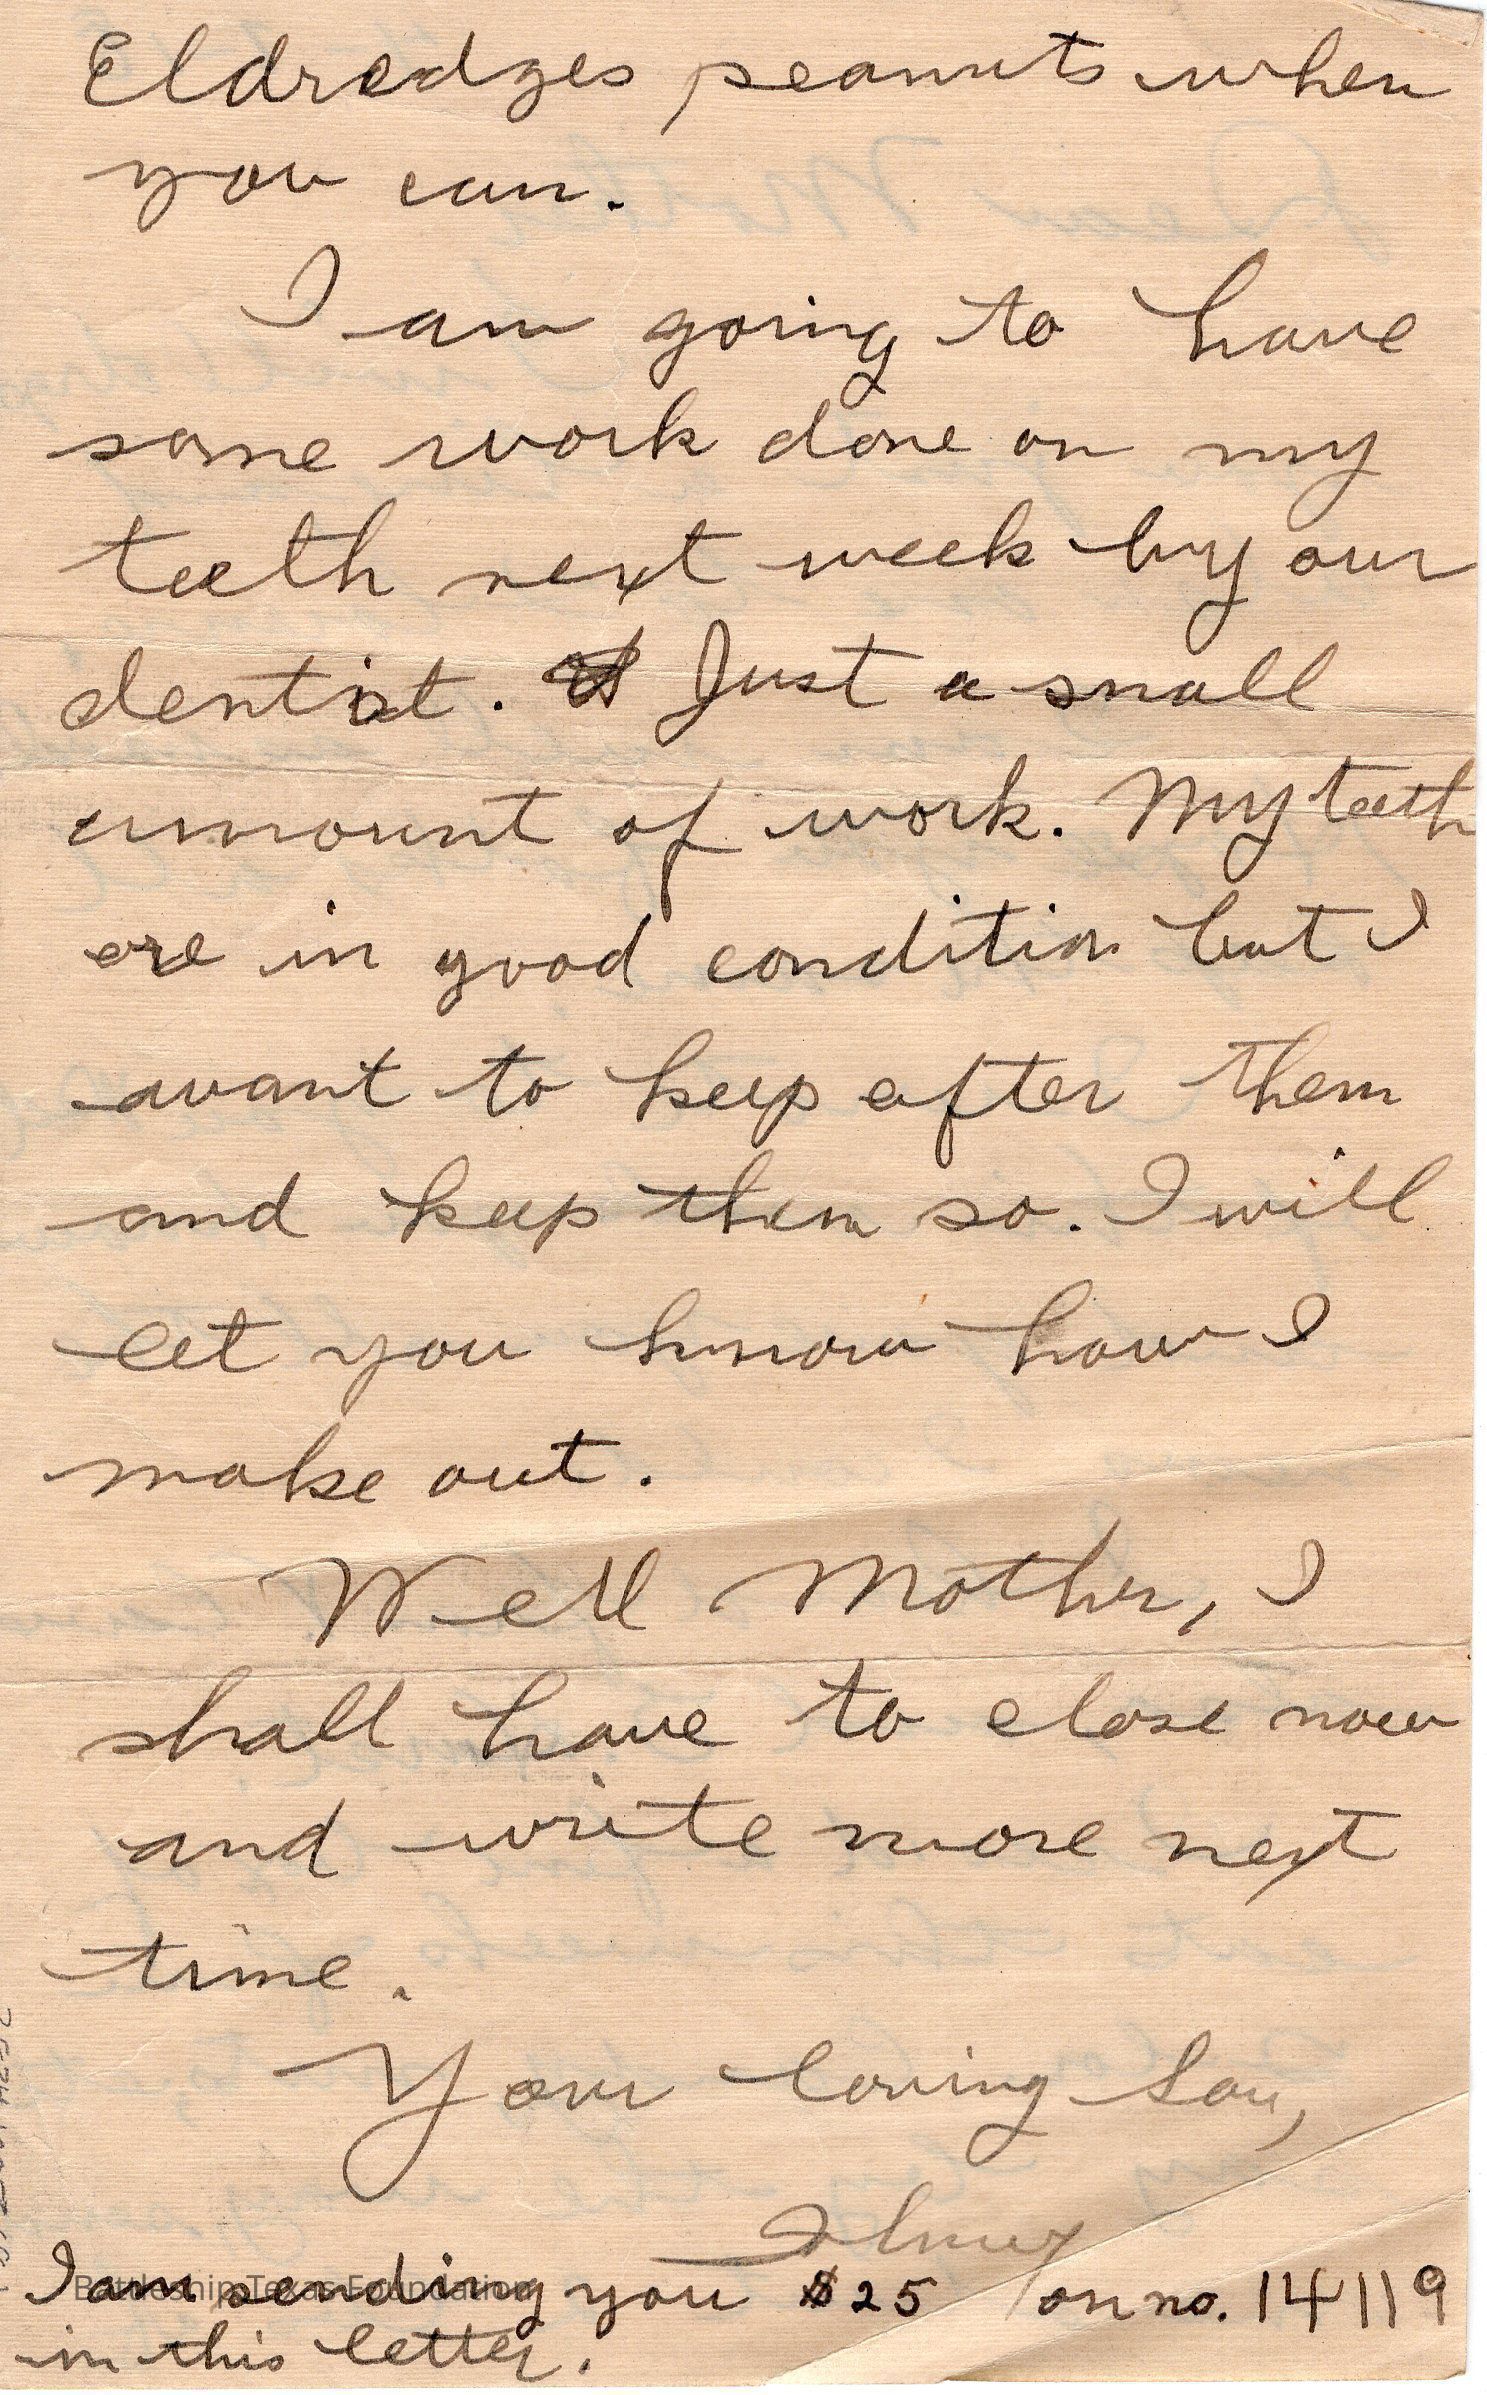 Eldredges peanuts when
you can.
I am going to have
some work done on my
teeth next week by our
dentist. Just a small
amount of work. My teeth
are in good condition but I
want to keep after them
and keep them so. I will
let you know how I
make out.
Well Mother, I
shall have to close now
and write more next
time.
Your loving Son,
I am sending you $25 on no. 14119
in this letter.
Battleship Texas Foundation